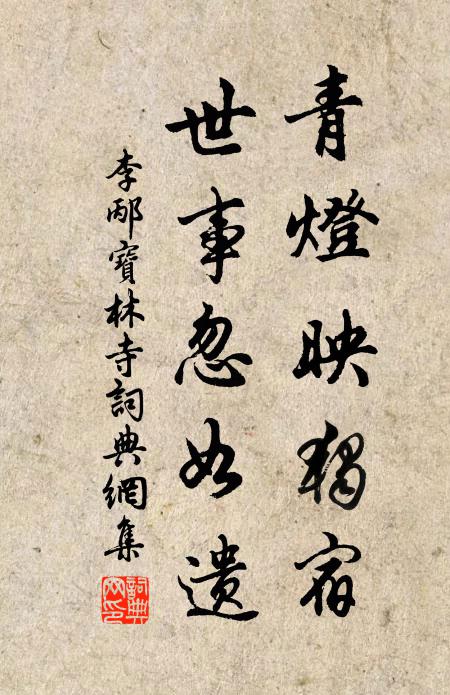 青燈映獨宿
世事忽如遺
李邴寶林寺詞典網集
詞典網印